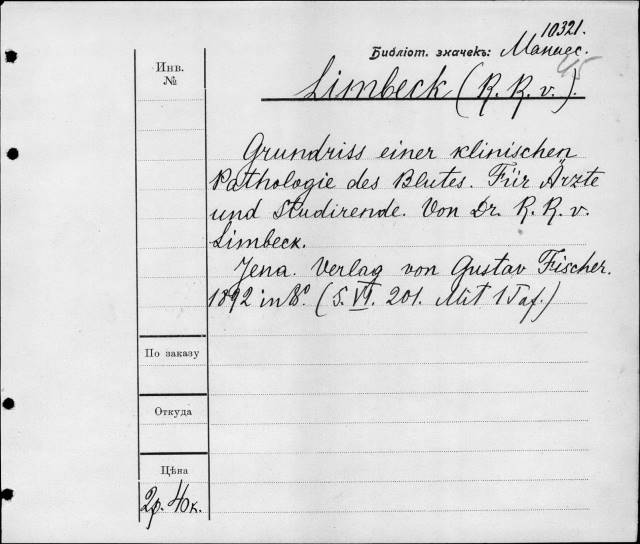 10321.
Библіот. значекъ: Манас.
Инв.
№
Limbeck (R. R. v.).
Grundriss einer klinischen
Pathologie des Blutes. Für Ärzte
und Studirende. Von Dr. R. R. v.
Limbeck.
Jena. Verlag von Gustav Fischer.
1892 in 8°. (S. VI. 201. Mit 1 Taf.)
По заказу
Откуда
Цѣна
2р. 40к.